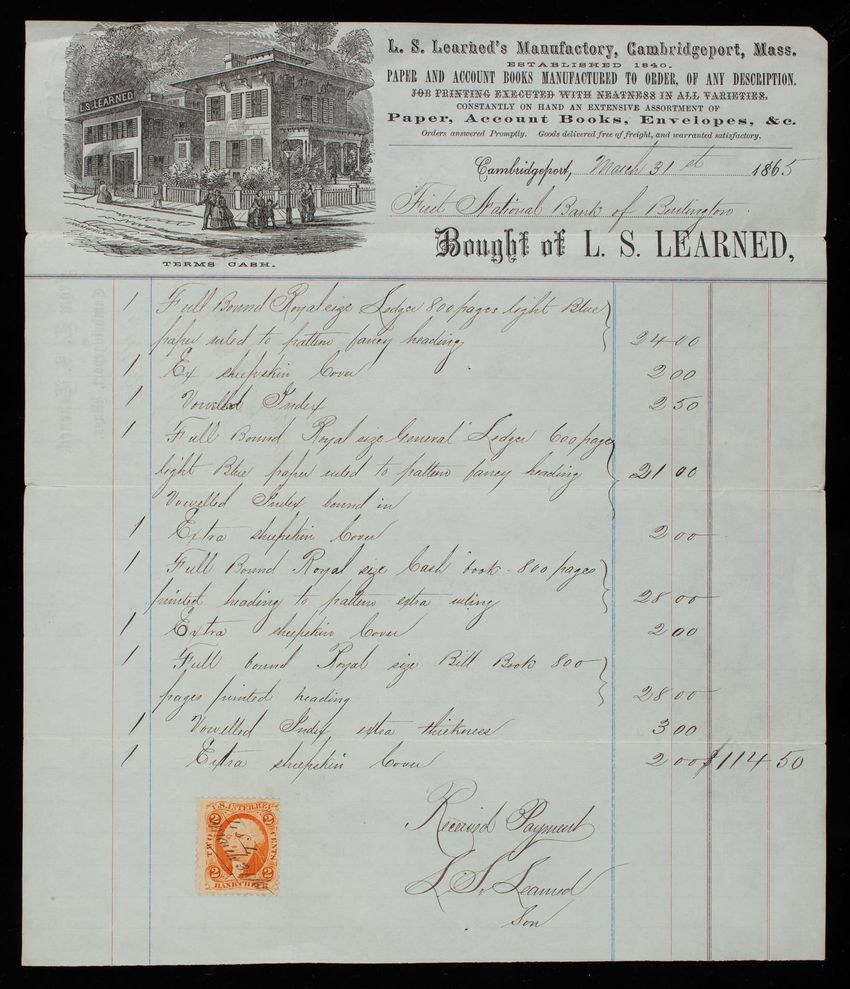 L. S. LEARNED
TERMS CASH.
L. S. Learned's Manufactory, Cambridgeport, Mass.
ESTABLISHED 1840.
PAPER AND ACCOUNT BOOKS MANUFACTURED TO ORDER, OF ANY DESCRIPTION.
JOB PRINTING EXECUTED WITH NEATNESS IN ALL VARIETIES.
CONSTANTLY ON HAND AN EXTENSIVE ASSORTMENT OF
Paper, Account Books, Envelopes, &c.
Orders answered Promptly. Goods delivered free of freight, and warranted satisfactory.
Cambridgeport, March 31st 1865
First National Bank of Burlington.
Bought of L. S. LEARNED,
1 Full Bound Royal size Ledger 800 pages light Blue
paper ruled to pattern fancy heading 24 00
1 Ex sheepskin Cover 2 00
1 Vowelled Index 2 50
1 Full Bound Royal size "General" Ledger 600 pages
light Blue paper ruled to pattern fancy heading 21 00
Vowelled Index bound in
1 Extra sheepskin Cover 2 00
1 Full Bound Royal size Cash book 800 pages
printed heading to pattern extra ruling 28 00
1 Extra sheepskin Cover 2 00
1 Full bound Royal size Bill Book 800
pages printed heading 28 00
1 Vowelled Index, extra thickness 3 00
1 Extra sheepskin Cover 2 00 $114 50
Received Payment
L. S. Learned
Son
U.S. INTER. REV.
2 2
TWO CENTS
2 2
BANK CHECK